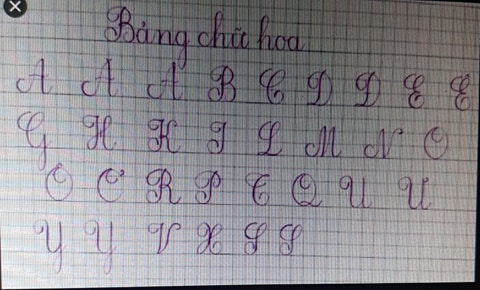 Bảng chữ hoa
A A A B C D D E E
G H K I L M N O
O Ơ R P C Q U U
Y Y V X S S